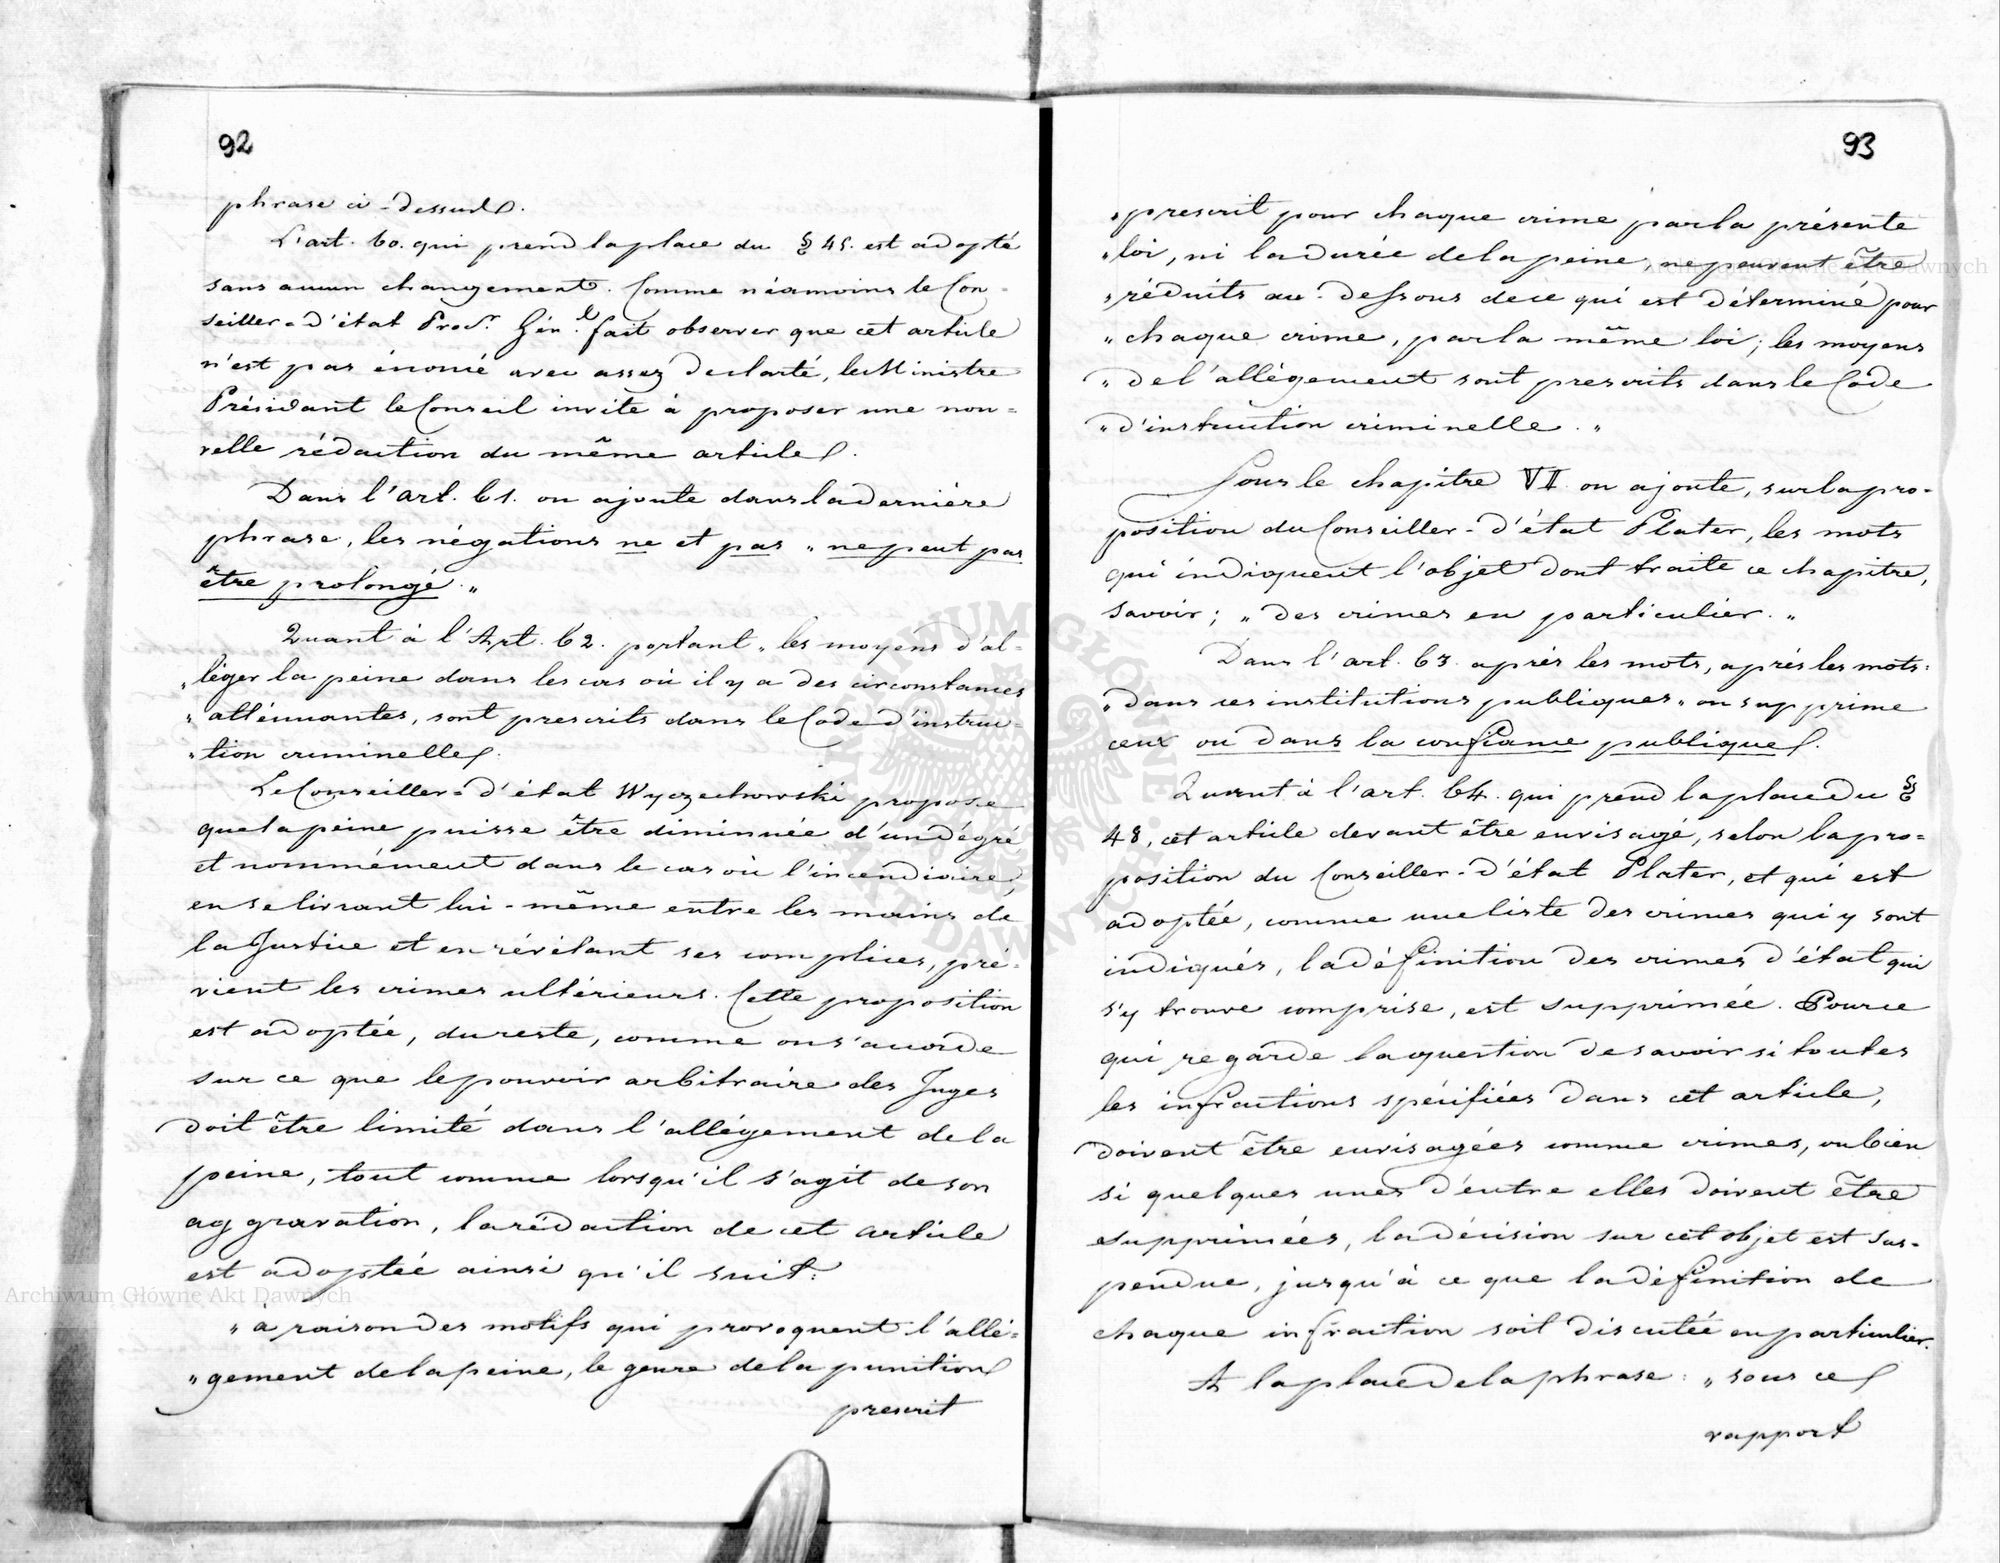 92
phrase ci-dessus.
L'art. 60. qui prend la place du § 45. est adopté
sans aucun changement. Comme néamoins le Con=
seiller-d'état Proc.r Gén.l fait observer que cet article
n'est pas énoncé avec assez de clarté, le Ministre
Présidant le Conseil invite à proposer une nou=
velle rédaction du même article.
Dans l'art. 61. on ajoute dans la dernière
phrase, les négations ne et pas „ ne peut pas
être prolongé. „
Quant à l'Art. 62. portant „ les moyens d'al=
„ léger la peine dans les cas où il y a des circonstances
„ atténuantes, sont prescrits dans le Code d'instruc=
„ tion criminelle.
Le Conseiller-d'état Wyczechowski propose
que la peine puisse être diminuée d'un dégré
et nommément dans le cas où l'incendiaire,
en se livrant lui-même entre les mains de
la Justice et en révélant ses complices, pré=
vient les crimes ultérieurs. Cette proposition
est adoptée, du reste, comme on s'accorde
sur ce que le pouvoir arbitraire des Juges
doit être limité dans l'allégement de la
peine, tout comme lorsqu'il s'agit de son
aggravation, la rédaction de cet article
est adoptée ainsi qu'il suit:
„ à raison des motifs qui provoquent l'allé=
„ gement de la peine, le genre de la punition
prescrit
93
„ prescrit pour chaque crime par la présente
„ loi, ni la durée de la peine, ne peuvent être
„ réduits au-dessous de ce qui est déterminé pour
„ chaque crime, par la même loi; les moyens
„ de l'allégement sont prescrits dans le Code
„ d'instruction criminelle. „
Sous le chapitre VII on ajoute, sur la pro=
position du Conseiller-d'état Plater, les mots
qui indiquent l'objet dont traite ce chapitre,
savoir; „ Des crimes en particulier. „
Dans l'art. 63. après les mots, après les mots:
„ dans ces institutions publiques „ on supprime
ceux ou dans la confiance publique.
Quant à l'art. 64. qui prend la place du §
48, cet article devant être envisagé, selon la pro=
position du Conseiller-d'état Plater, et qui est
adoptée, comme une liste des crimes qui y sont
indiqués, la définition des crimes d'état qui
s'y trouve comprise, est supprimée. Pour ce
qui regarde la question de savoir si toutes
les infractions spécifiées dans cet article,
doivent être envisagées comme crimes, ou bien
si quelques unes d'entre elles doivent être
supprimées, la décision sur cet objet est sus=
pendue, jusqu'à ce que la définition de
chaque infraction soit discutée en particulier.
A la place de la phrase: „ sous ce
rapport
Archiwum Główne Akt Dawnych
Archiwum Główne Akt Dawnych
ARCHIWUM GŁÓWNE AKT DAWNYCH